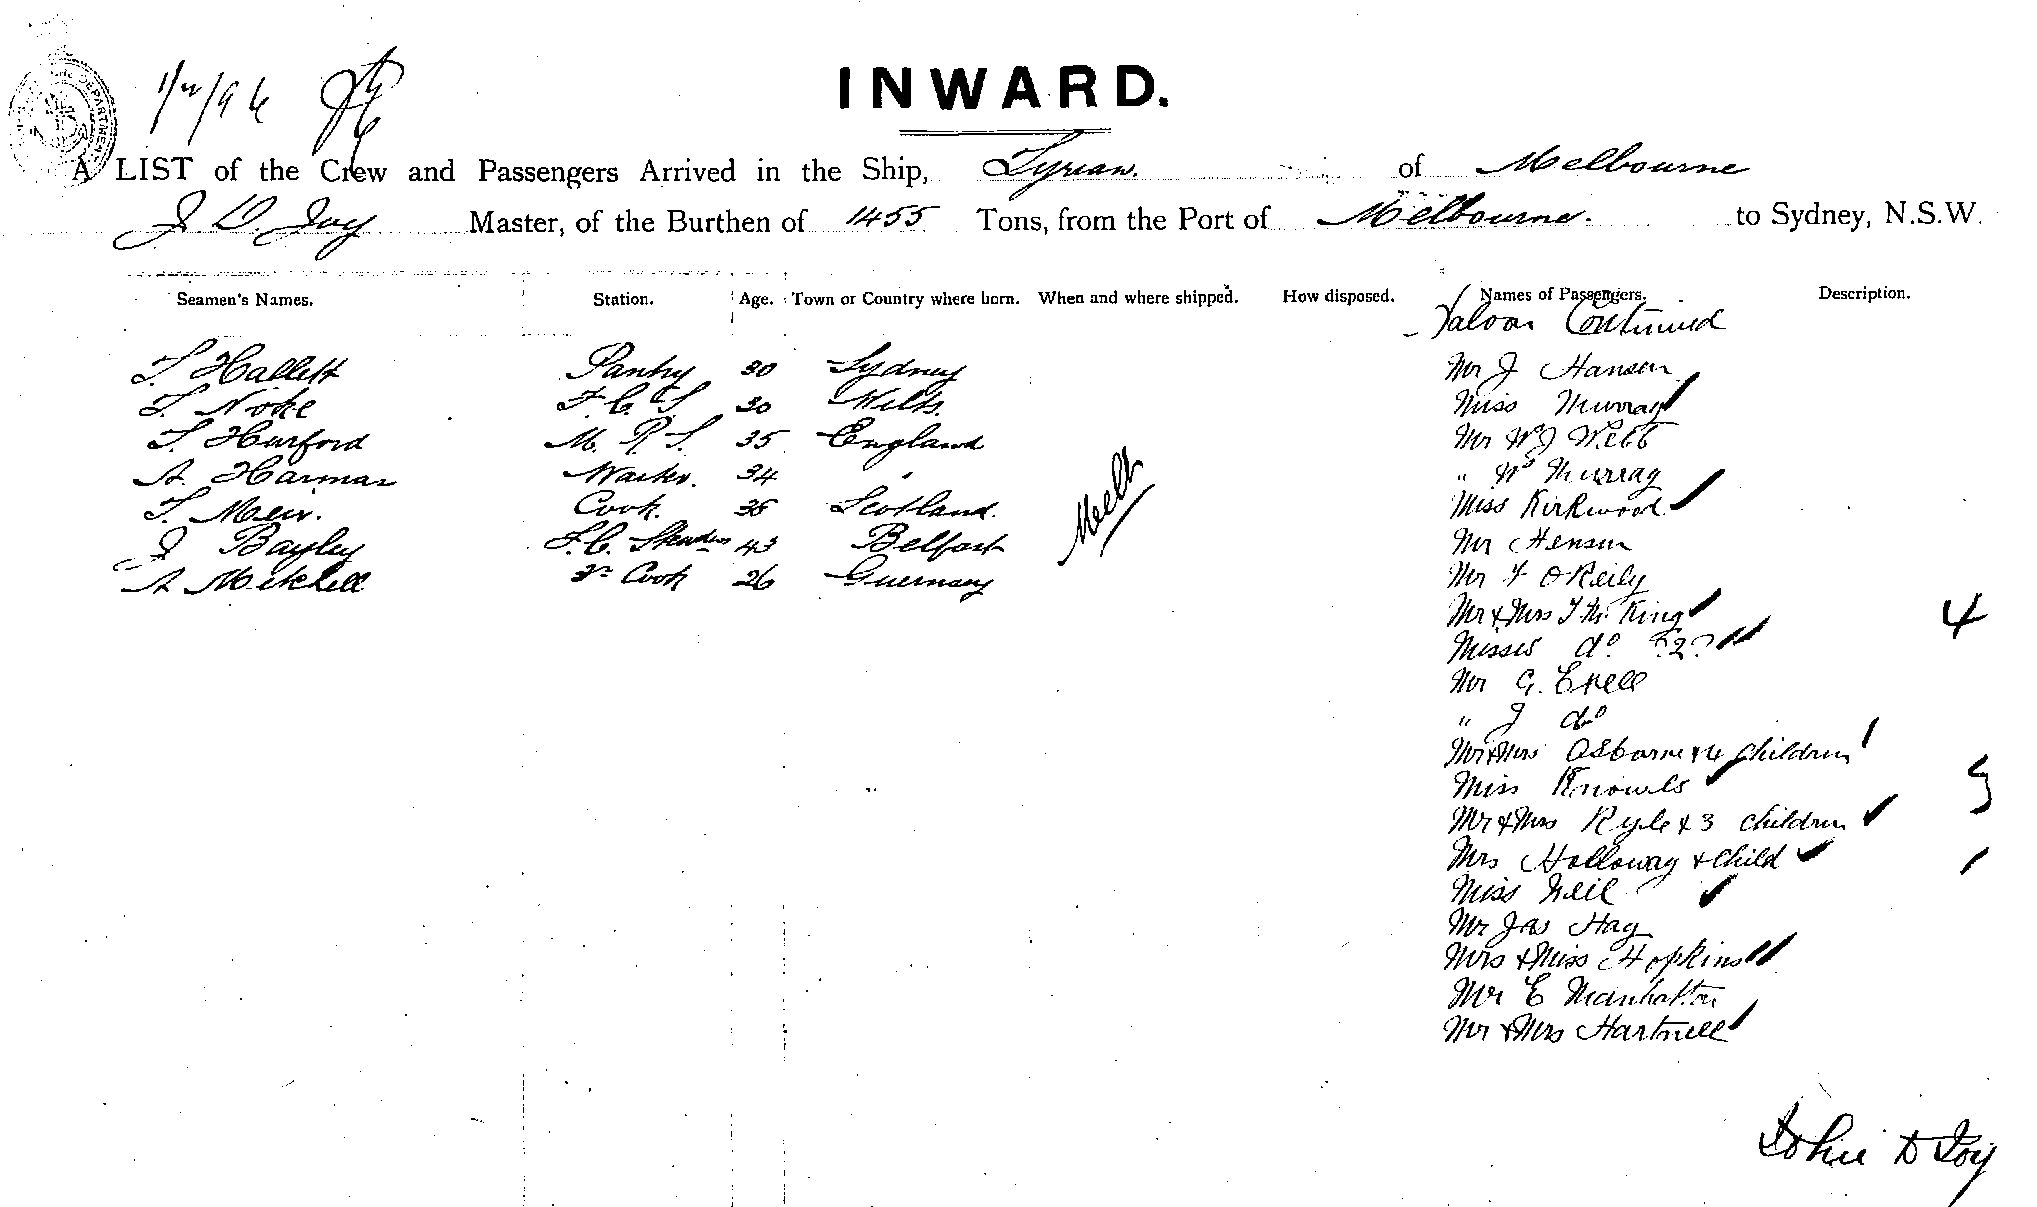 DEPARTMENT
INWARD.
A LIST of the Crew and Passengers Arrived in the Ship, Tyrian. of Melbourne
J D. Joy Master, of the Burthen of 1455 Tons, from the Port of Melbourne. to Sydney, N.S.W.
Seamen's Names. Station. Age. Town or Country where born. When and where shipped. How disposed. Names of Passengers. Description.
Saloon Continued
T. Hallett Pantry 30 Sydney Mr J Hansen
T. Noke F. C. S 30 Wilts. Miss Murray
T. Hurford M. R. S. 35 England Mr W J Webb
A. Harman 34 " " Wm Murray
T. Meir. Cook. 35 Scotland. Melb Miss Kirkwood
J Bayley F. C. 43 Belfast Mr Hensen
A Mitchell Cook 26 Guernsey Mr F OReily
Mr & Mrs T M. King 4
Misses do (2)
Mr G. Ekell
" J do
Mr & Mrs Osborne & 4 children
Miss Knowls
Mr & Mrs Ryle & 3 children
Mrs Holloway & Child
Miss Neil
Mr Jas Hay
Mrs & Miss Hopkins
Mr E Manhatton
Mr & Mrs Hartnell
John D Joy